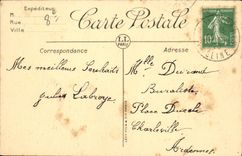 Expéditeur
M
Rue
Ville
8f
Carte Postale
LL
PARIS
Correspondance
Adresse
10
SEINE
Mes meilleurs Souhaits
Labroye
Mlle Durand
Buraliste
Place Ducale
Charleville
Ardennes